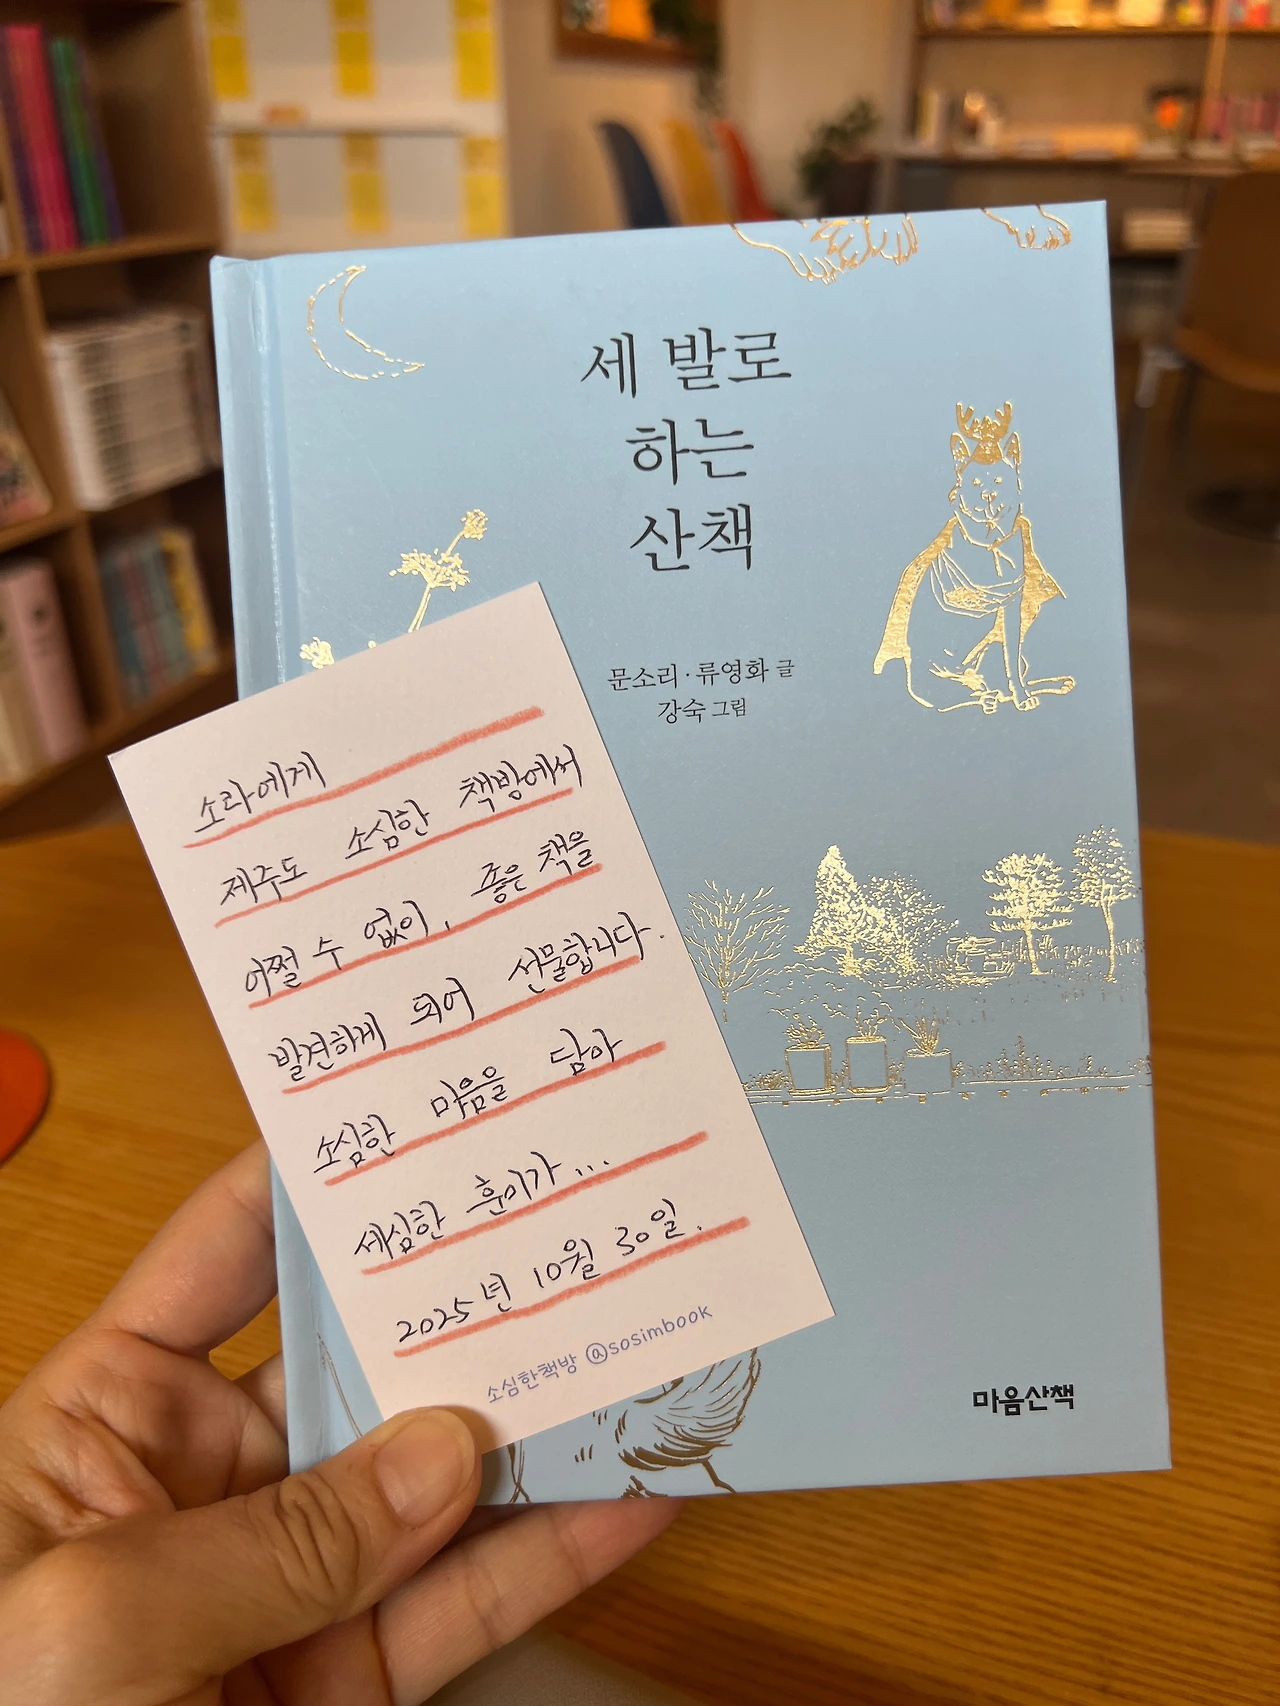 세 발로
하는
산책
문소리·류영화 글
강숙 그림
소라에게
제주도 소심한 책방에서
어쩔 수 없이, 좋은 책을
발견하게 되어 선물합니다.
소심한 마음을 담아
세심한 훈이가...
2025년 10월 30일.
소심한책방 @sosimbook
마음산책